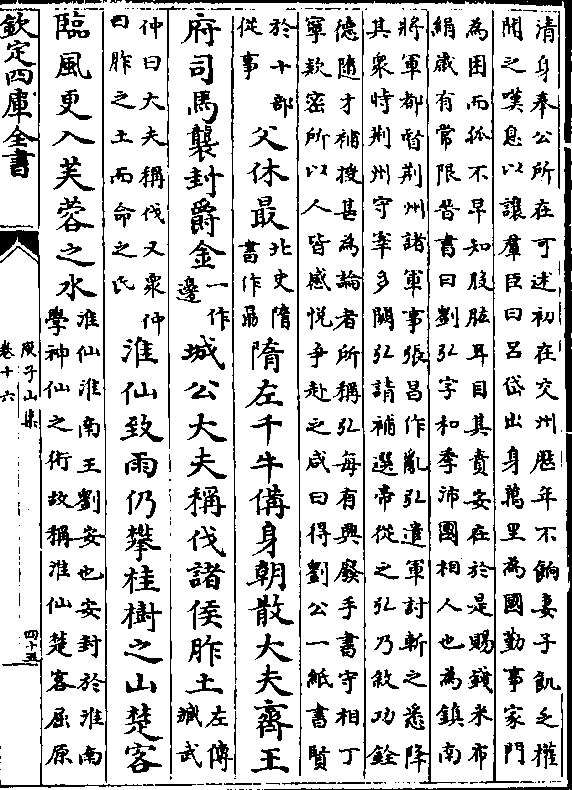 清身奉公所在可述初在交州歴年不餉妻子飢乏權
聞之嘆息以讓羣臣曰呂岱出身萬里為國勤事家門
為困而孤不早知股肱耳目其責安在於是賜錢米布
絹歲有常限晉書曰劉弘字和季沛國相人也為鎮南
將軍都督荆州諸軍事張昌作亂弘遣軍討斬之悉降
其衆時荆州守宰多闕弘請補選帝從之弘乃敘功銓
德隨才補授甚為論者所稱弘每有興廢手書守相丁
寧欵密所以人皆感悦爭赴之咸曰得劉公一紙書賢
於十部
從事
父休最
北史隋
書作朂
隋左千牛備身朝散大夫齊王
府司馬襲封爵金
一作
邊
城公大夫稱伐諸侯胙土
左傳
臧武
仲曰大夫稱伐又衆仲
曰胙之土而命之氏
淮仙致雨仍攀桂樹之山楚客
臨風更入芙蓉之水
淮仙淮南王劉安也安封於淮南
學神仙之術故稱淮仙楚客屈原
欽定四庫全書
庾子山集
卷十六
四十五